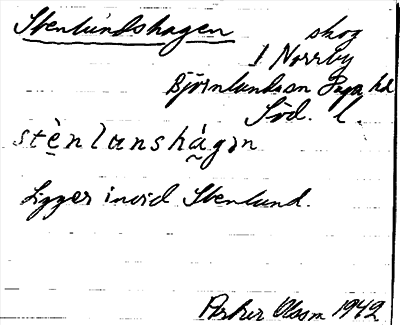 Stenlundshagen
skog
i Norrby
Björnlunds sn Daga hd
Söd. l.
stènlunshágən
Ligger invid Stenlund.
Olsson 1942